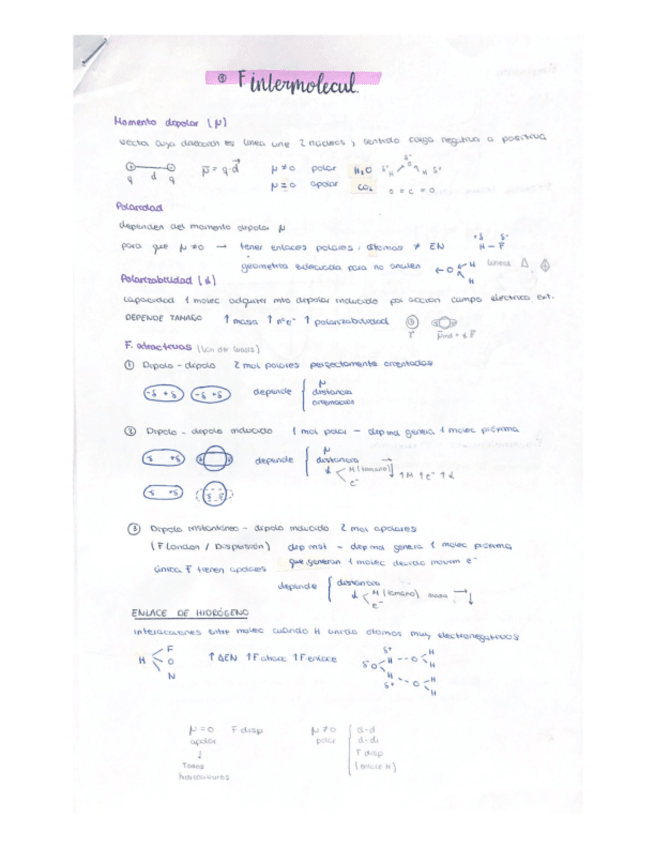 F intermolecul.
Momento dipolar (μ)
vector cuya dirección es línea une 2 núcleos y sentido carga negativa a positiva
q d q μ = q·d μ≠0 polar H₂O δ⁻ δ⁺ H O H δ⁺
μ=0 apolar CO₂ O = C = O
Polaridad
dependen del momento dipolar μ
para que μ≠0 → tener enlaces polares: átomos ≠ EN +δ δ⁻ H - F
geometría adecuada para no anulen ←O H H lineal
Polarizabilidad (α)
capacidad 1 molec adquirir mto dipolar inducido por acción campo eléctrico ext.
DEPENDE TAMAÑO ↑ masa ↑ nº e⁻ ↑ polarizabilidad
F. atractivas
① Dipolo - dipolo 2 mol polares perfectamente orientados
-δ +δ -δ +δ depende μ
distancia
orientación
② Dipolo - dipolo inducido 1 mol polar - dep ma genera 1 molec próxima
-δ +δ depende μ
distancia
α M (tamaño) ↑M ↑e⁻ ↑α
e⁻
-δ +δ
③ Dipolo instantáneo - dipolo inducido 2 mol apolares
(F London / Dispersión) dip inst - dep ma genera 1 molec próxima
única F tienen apolares que generan 1 molec movim e⁻
depende distancias
α M (tamaño) masa
e⁻
ENLACE DE HIDRÓGENO
interacciones entre molec cuando H unido átomos muy electronegativos
H F O N ↑ ΔEN ↑F atracc ↑F enlace
μ=0 F disp μ≠0 d-d
apolar polar d-di
↓ F disp
Todos (enlace H)
hidrocarburos